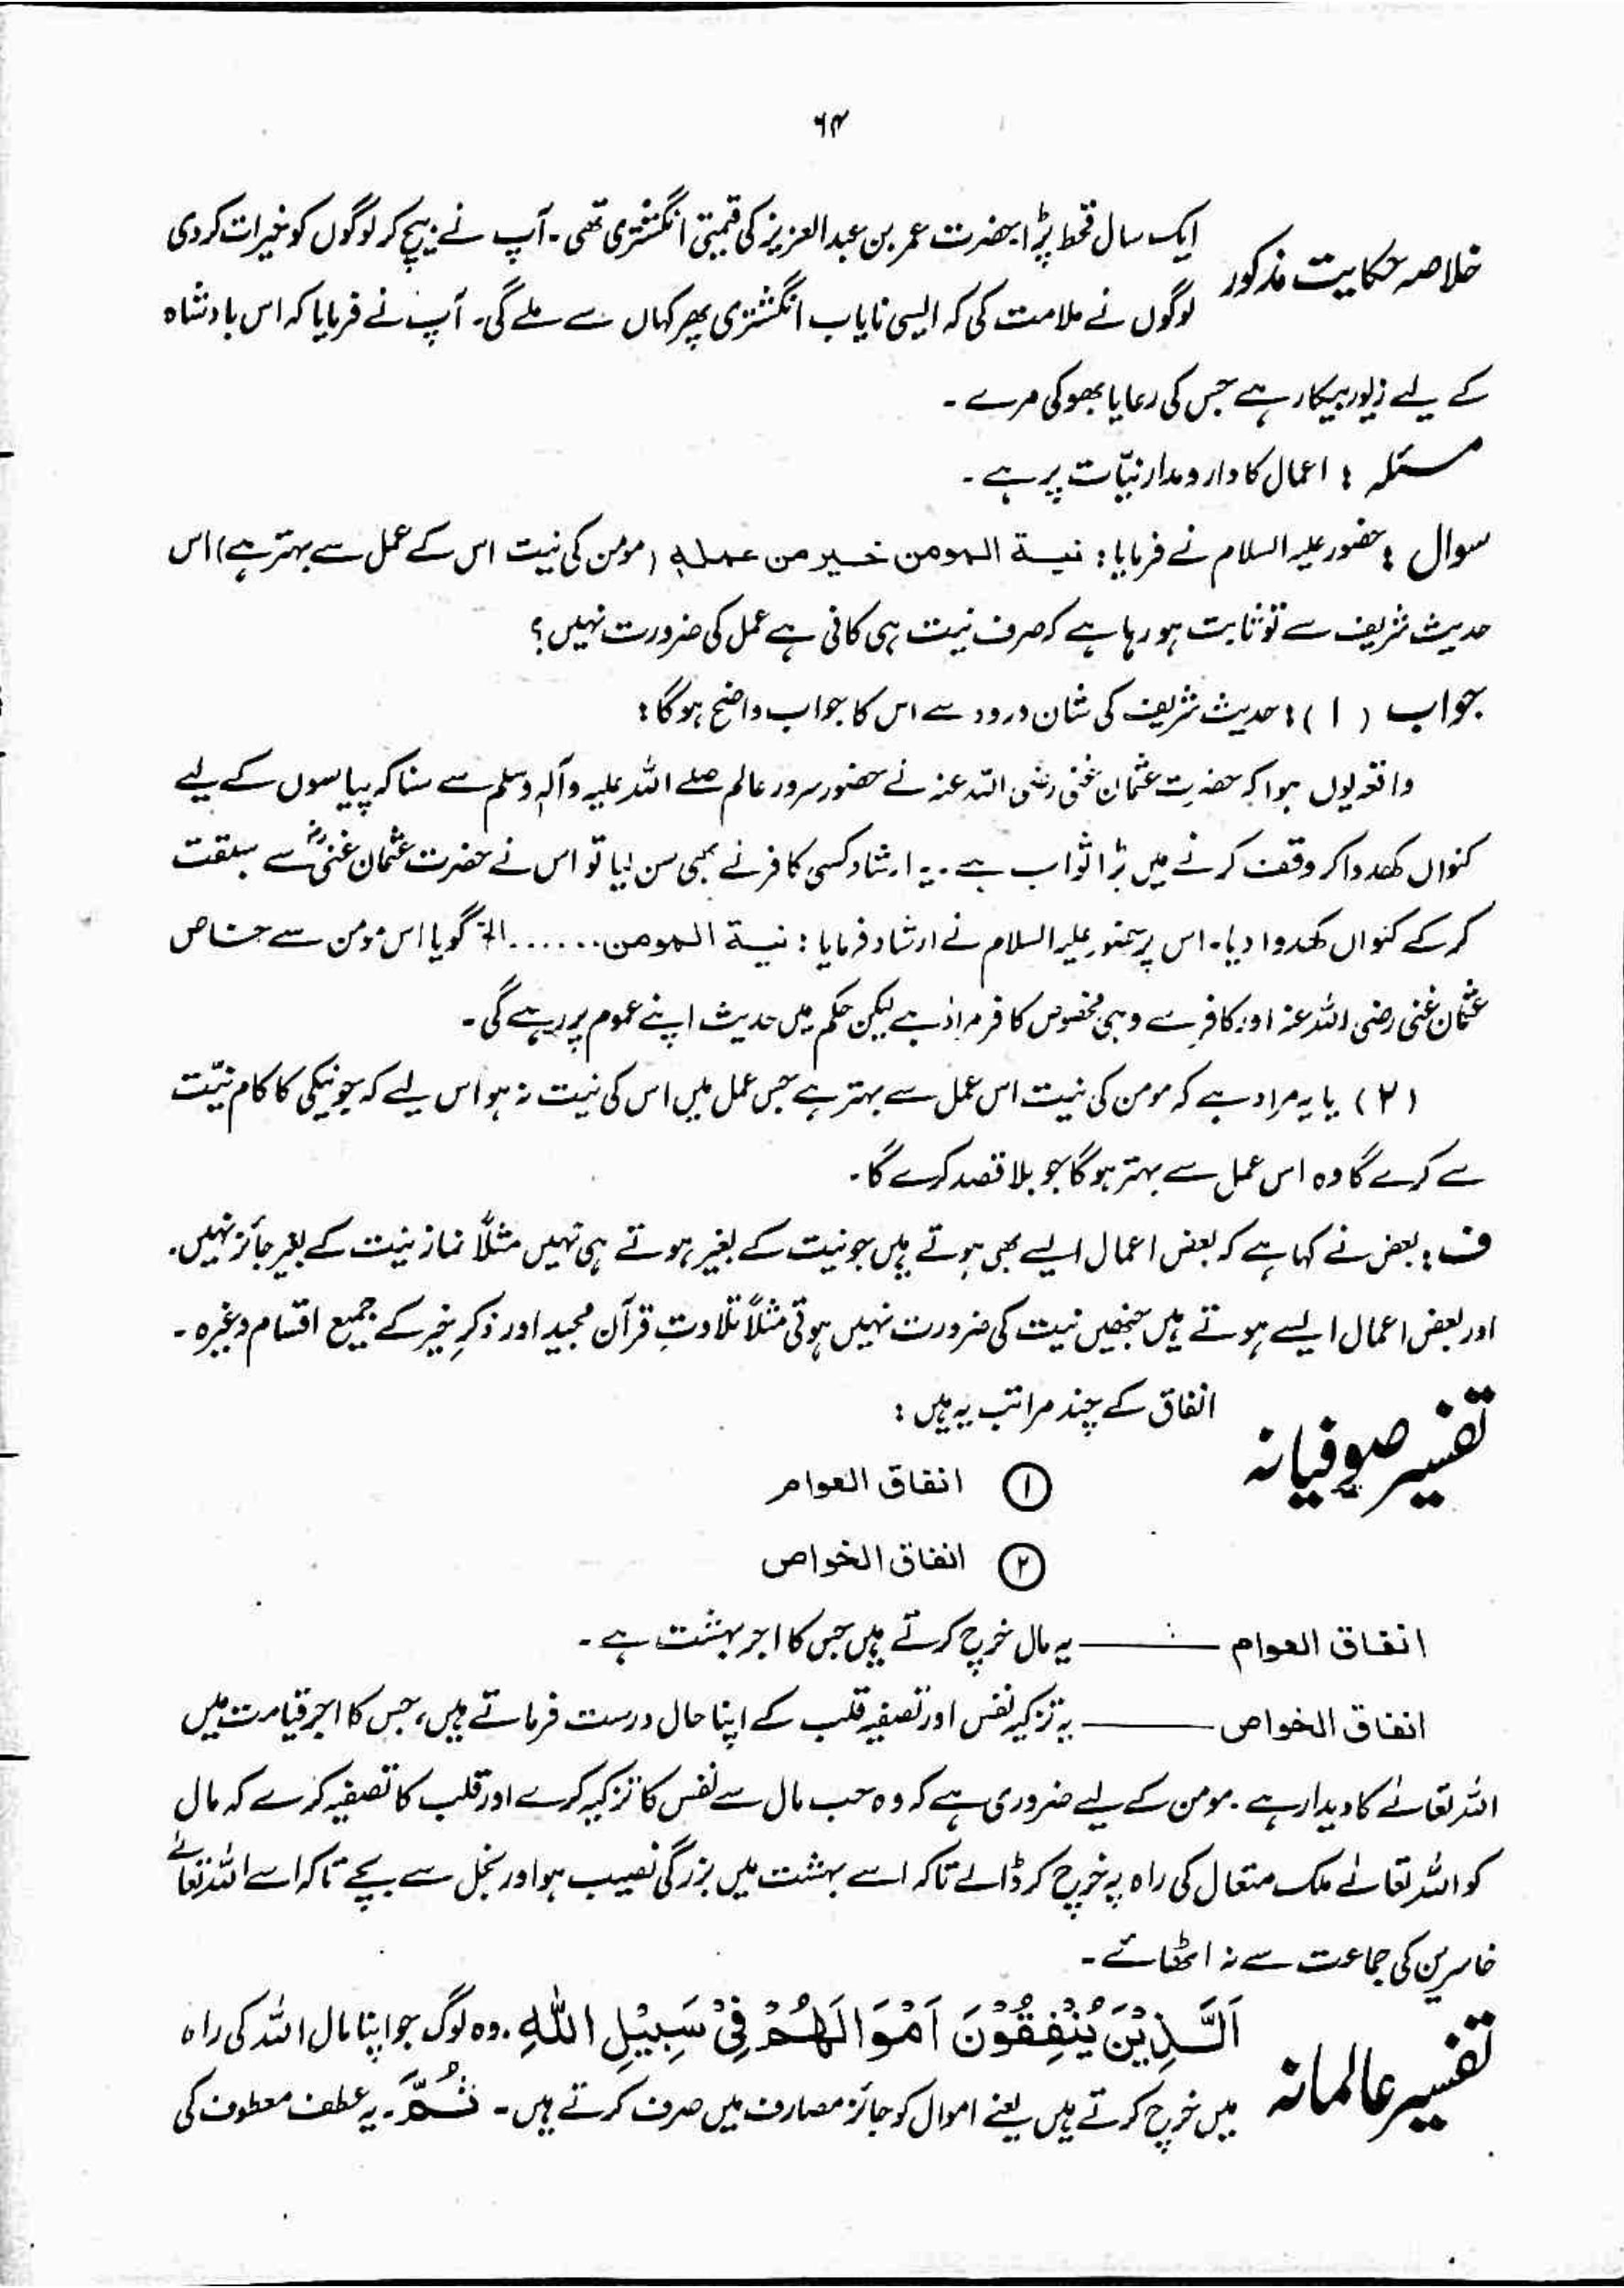 ۶۴
خلاصہ حکایت مذکور
ایک سال قحط پڑا حضرت عمر بن عبدالعزیز کی قیمتی انگشتری تھی۔ آپ نے بیچ کر لوگوں کو خیرات کر دی
لوگوں نے ملامت کی کہ ایسی نایاب انگشتری پھر کہاں سے ملے گی۔ آپ نے فرمایا کہ اس بادشاہ
کے لیے زیور بیکار ہے جس کی رعایا بھوکی مرے۔
مسئلہ : اعمال کا دار و مدار نیّات پر ہے۔
سوال : حضور علیہ السلام نے فرمایا : نیۃ المومن خیر من عملہ (مومن کی نیت اس کے عمل سے بہتر ہے) اس
حدیث شریف سے تو ثابت ہو رہا ہے کہ صرف نیت ہی کافی ہے عمل کی ضرورت نہیں؟
جواب (۱) : حدیث شریف کی شان ورود سے اس کا جواب واضح ہوگا :
واقعہ یوں ہوا کہ حضرت عثمان غنی رضی اللہ عنہ نے حضور سرور عالم صلے اللہ علیہ وآلہ وسلم سے سنا کہ پیاسوں کے لیے
کنواں کھدوا کر وقف کرنے میں بڑا ثواب ہے۔ یہ ارشاد کسی کافر نے بھی سن لیا تو اس نے حضرت عثمان غنیؓ سے سبقت
کر کے کنواں کھدوا دیا۔ اس پر حضور علیہ السلام نے ارشاد فرمایا : نیۃ المومن...... الخ گویا اس مومن سے خاص
عثمان غنی رضی اللہ عنہ اور کافر سے وہی مخصوص کافر مراد ہے لیکن حکم میں حدیث اپنے عموم پر رہے گی۔
(۲) یا یہ مراد ہے کہ مومن کی نیت اس عمل سے بہتر ہے جس عمل میں اس کی نیت نہ ہو اس لیے کہ جو نیکی کا کام نیّت
سے کرے گا وہ اس عمل سے بہتر ہوگا جو بلا قصد کرے گا۔
ف : بعض نے کہا ہے کہ بعض اعمال ایسے بھی ہوتے ہیں جو نیت کے بغیر ہوتے ہی نہیں مثلاً نماز نیت کے بغیر جائز نہیں۔
اور بعض اعمال ایسے ہوتے ہیں جنھیں نیت کی ضرورت نہیں ہوتی مثلاً تلاوتِ قرآن مجید اور ذکرِ خیر کے جمیع اقسام وغیرہ۔
تفسیر صوفیانہ
انفاق کے چند مراتب یہ ہیں :
① انفاق العوام
② انفاق الخواص
انفاق العوام ——— یہ مال خرچ کرتے ہیں جس کا اجر بہشت ہے۔
انفاق الخواص ——— یہ تزکیہ نفس اور تصفیہ قلب کے اپنا حال درست فرماتے ہیں، جس کا اجر قیامت میں
اللہ تعالٰے کا دیدار ہے۔ مومن کے لیے ضروری ہے کہ وہ حب مال سے نفس کا تزکیہ کرے اور قلب کا تصفیہ کرے کہ مال
کو اللہ تعالٰے ملک متعال کی راہ پر خرچ کر ڈالے تاکہ اسے بہشت میں بزرگی نصیب ہو اور بخل سے بچے تاکہ اسے اللہ تعالٰے
خاسرین کی جماعت سے نہ اٹھائے۔
تفسیر عالمانہ
اَلَّذِیْنَ یُنْفِقُوْنَ اَمْوَالَھُمْ فِیْ سَبِیْلِ اللہِ۔ وہ لوگ جو اپنا مال اللہ کی راہ
میں خرچ کرتے ہیں یعنے اموال کو جائز مصارف میں صرف کرتے ہیں۔ ثُمَّ۔ یہ عطف معطوف کی